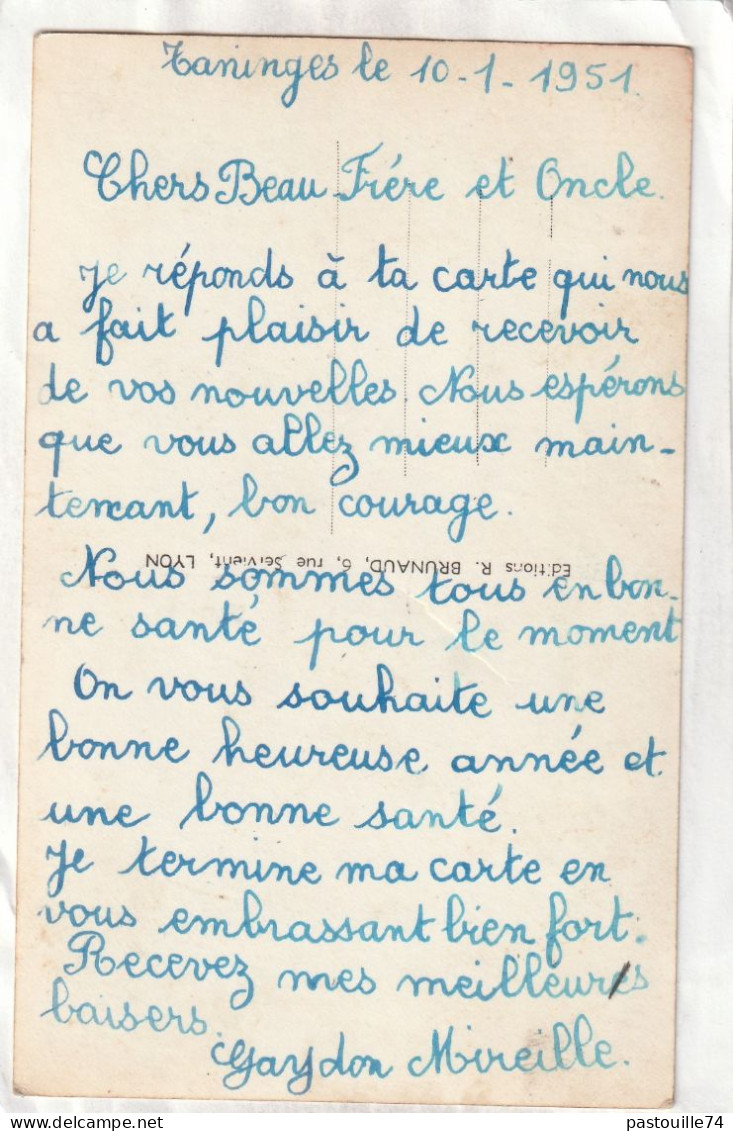 Taninges le 10-1-1951.
Chers Beau-Frére et Oncle.
Je réponds à ta carte qui nous
a fait plaisir de recevoir
de vos nouvelles. Nous espérons
que vous allez mieux main-
tenant, bon courage.
Editions R. BRUNAUD, 6, rue Servient, LYON
Nous sommes tous en bon-
ne santé pour le moment
On vous souhaite une
bonne heureuse année et
une bonne santé.
Je termine ma carte en
vous embrassant bien fort.
Recevez mes meilleurs
baisers.
Gaydon Mireille.
pastouille74